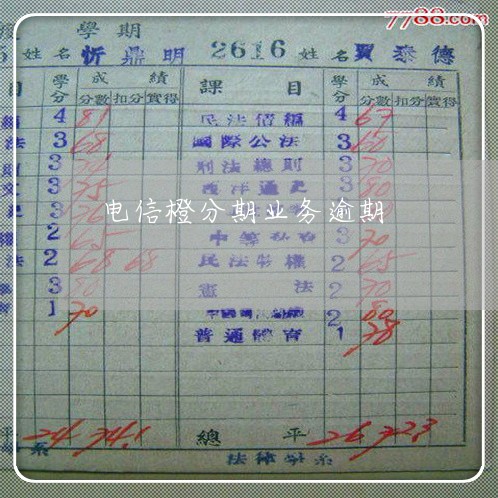 7788.com
學期
姓名 忻鼎明 2616 姓名 賈泰德
目 學分 成績 課目 學分 成績
分數 扣分 實得 分數 扣分 實得
4 81 民法債編 4 67
法 3 68 國際公法 3 60
3 刑法總則 3 70
3 75 西洋通史 3 80
3 76
2 65 3 70
法 2 68 68 民法物權 2 65
3 80 憲法 2 70
1 70 2 80
普通體育 1 78
電信橙分期业务逾期
平 24 74.1 總平 26 72.3
系 法律學系